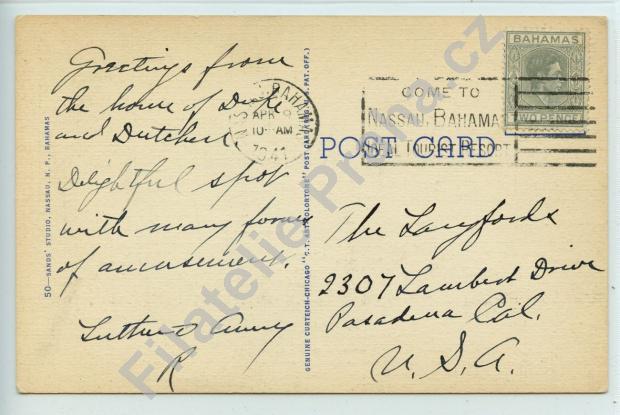 Greetings from
the home of Duke
and Dutchess
Delightful spot
with many forms
of amusement.
Luther & Anny
R
50—SANDS' STUDIO, NASSAU, N. P., BAHAMAS
GENUINE CURTEICH-CHICAGO "C.T. ART-COLORTONE" POST CARD (REG. U.S. PAT. OFF.)
BAHAMAS
APR
10-AM
1941
COME TO
NASSAU, BAHAMAS
IDEAL TOURIST RESORT
BAHAMAS
TWO PENCE
POST CARD
The Langfords
2307 Lambert Drive
Pasadena Cal.
U.S.A.
Filatelie Praha.cz